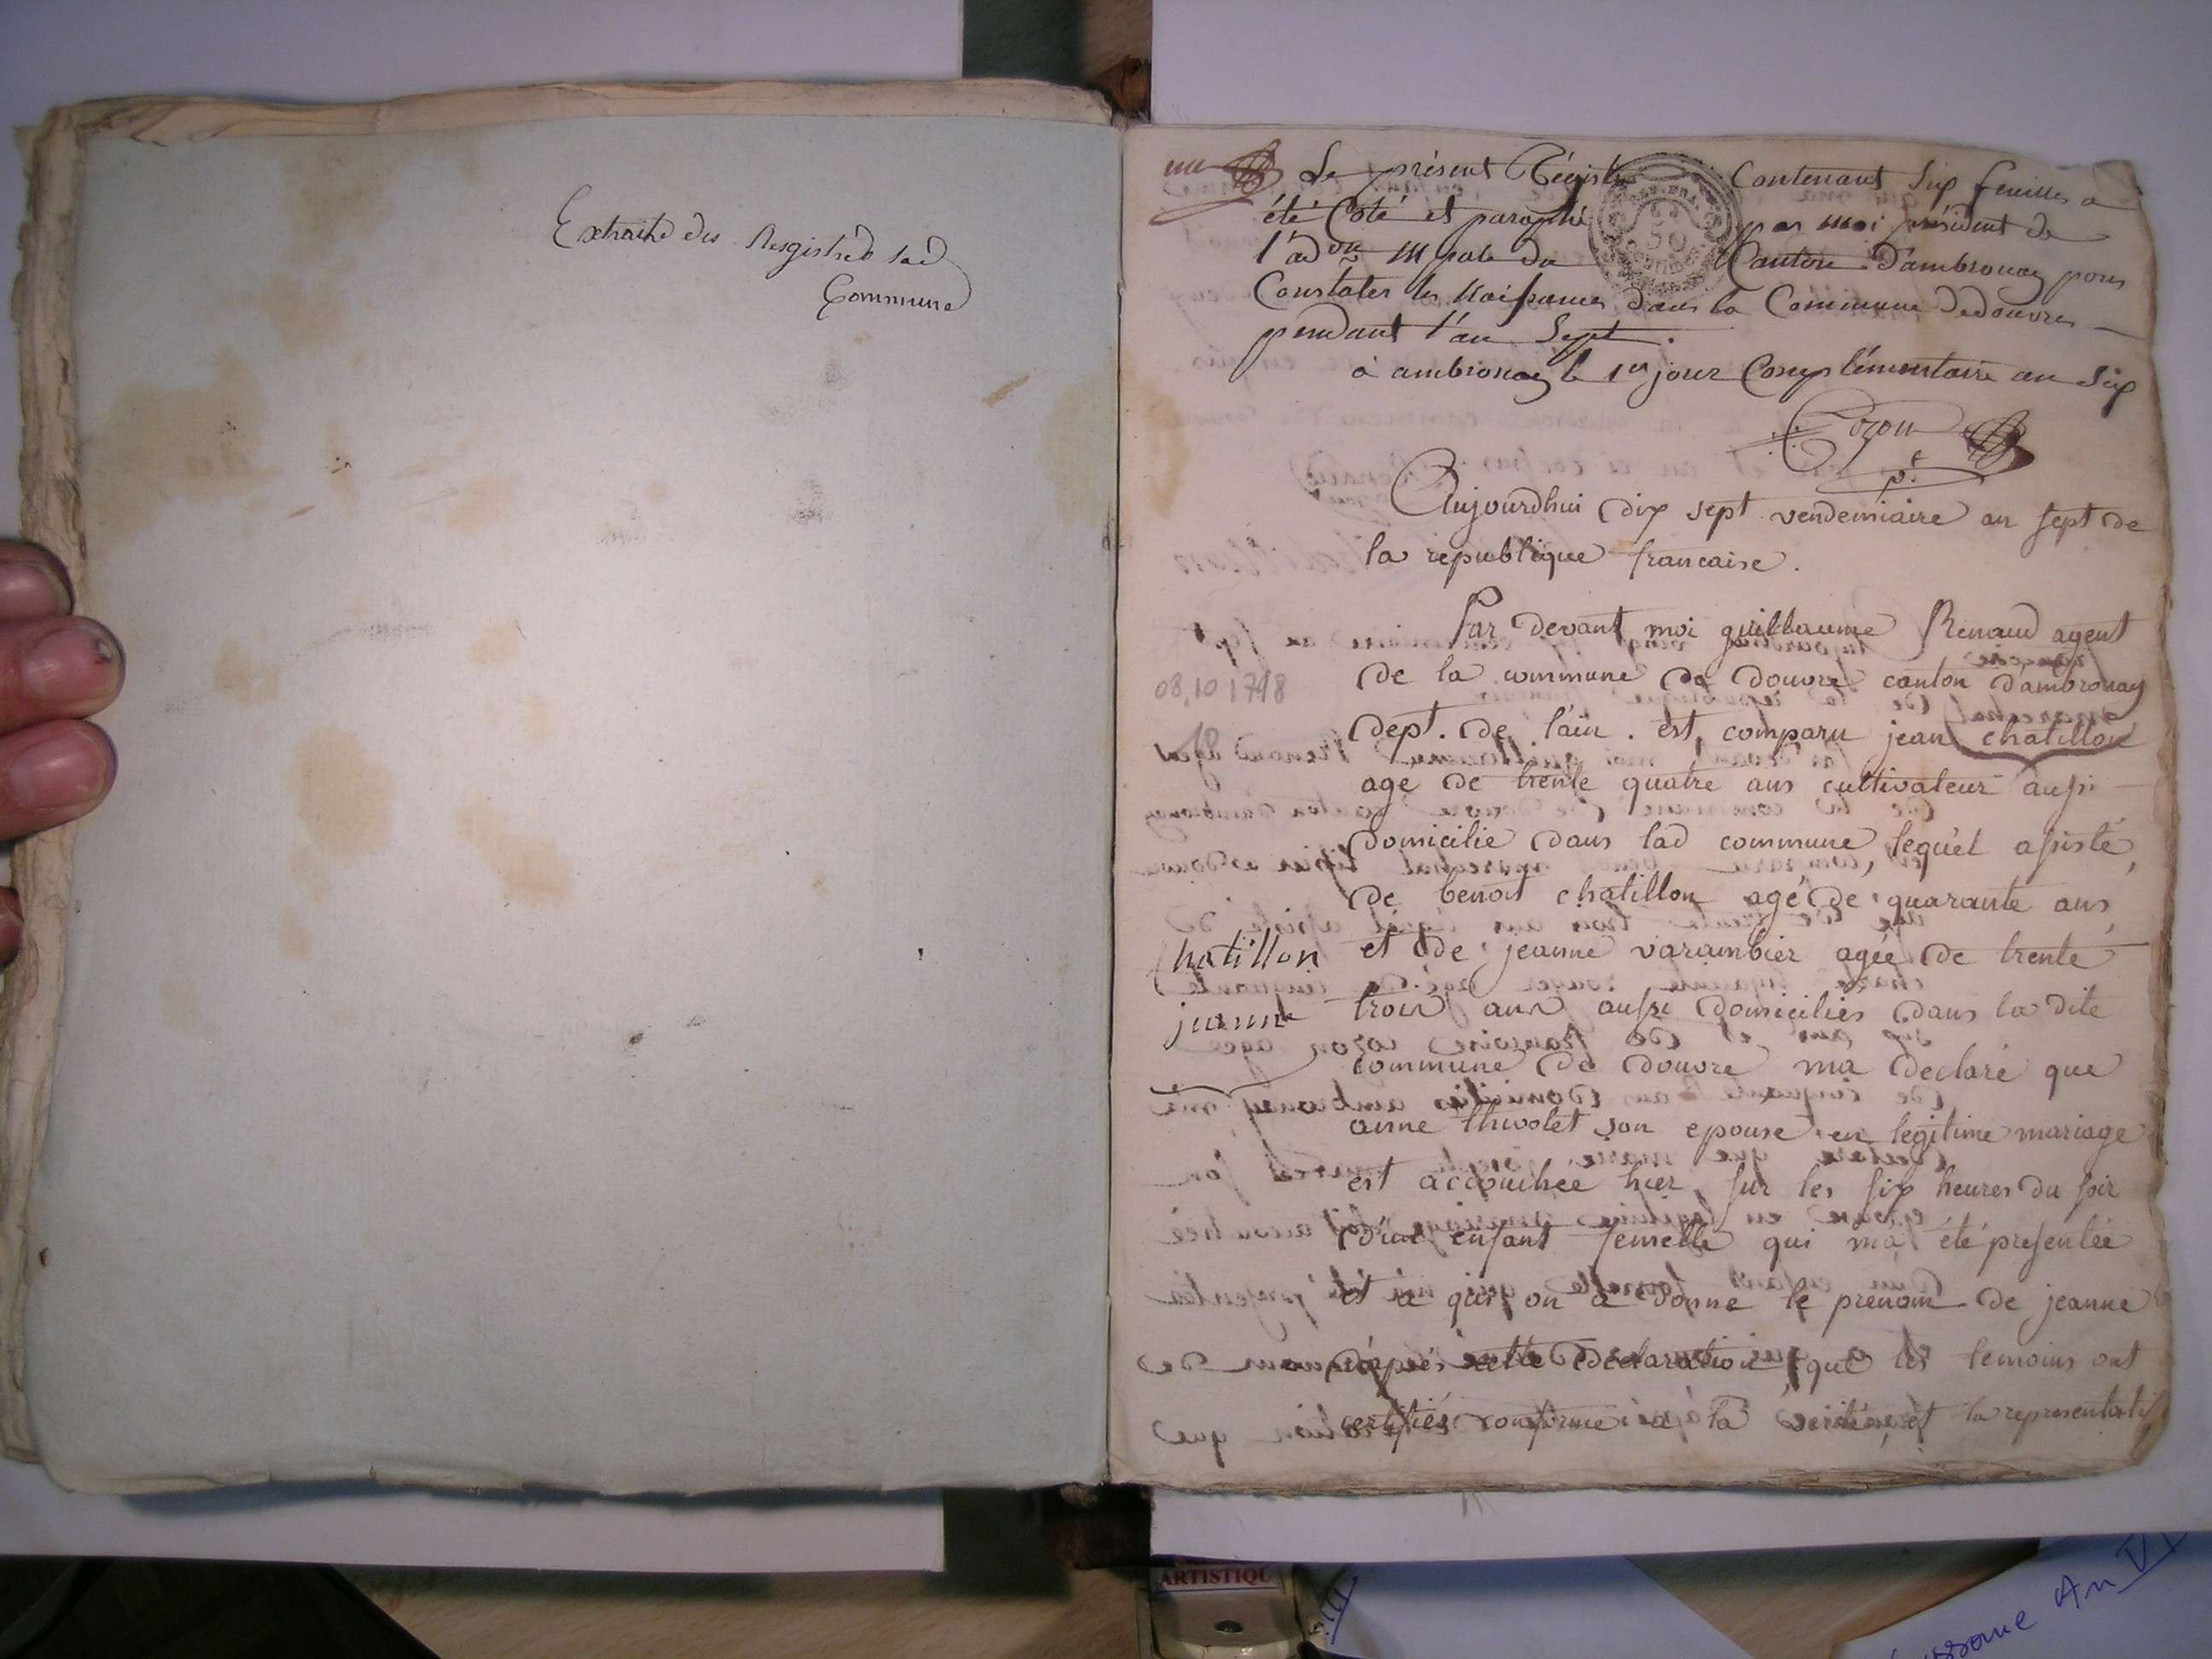 Extraits des Registres lad
Commune
un
Le présent Régistre Contenant six feuilles a
été Coté et paraphé par moi président de
l'adon mpale du Canton d'ambronay pour
Constater les Naissances dans la Commune dedouvres
pendant l'an Sept.
à ambronay le 1er jour Complémentaire an Six
Cozon
pt
Aujourdhui dix sept vendemiaire an sept de
la republique francaise.
Par devant moi guillaume Renaud agent
de la commune de douvre canton d'ambronay
08,10 1798
dept. de l'ain. est comparu jean chatillon
age de trente quatre ans cultivateur aussi
domicilie dans lad commune, lequel assisté,
de benoit chatillon agé de quarante ans,
hatillon
jeanne
et de jeanne varambier agée de trente
trois ans aussi domiciliés dans la dite
commune de douvre ma declaré que
anne thivolet son epouse en legitime mariage
est accouchée hier, sur les six heures du soir
d'un enfant femelle qui ma été presentée
et a qui on a donne le prenom de jeanne
d'après cette declaration que les temoins ont
certifiés conforme a la verité, et la representati
ARTISTIQU
An VI